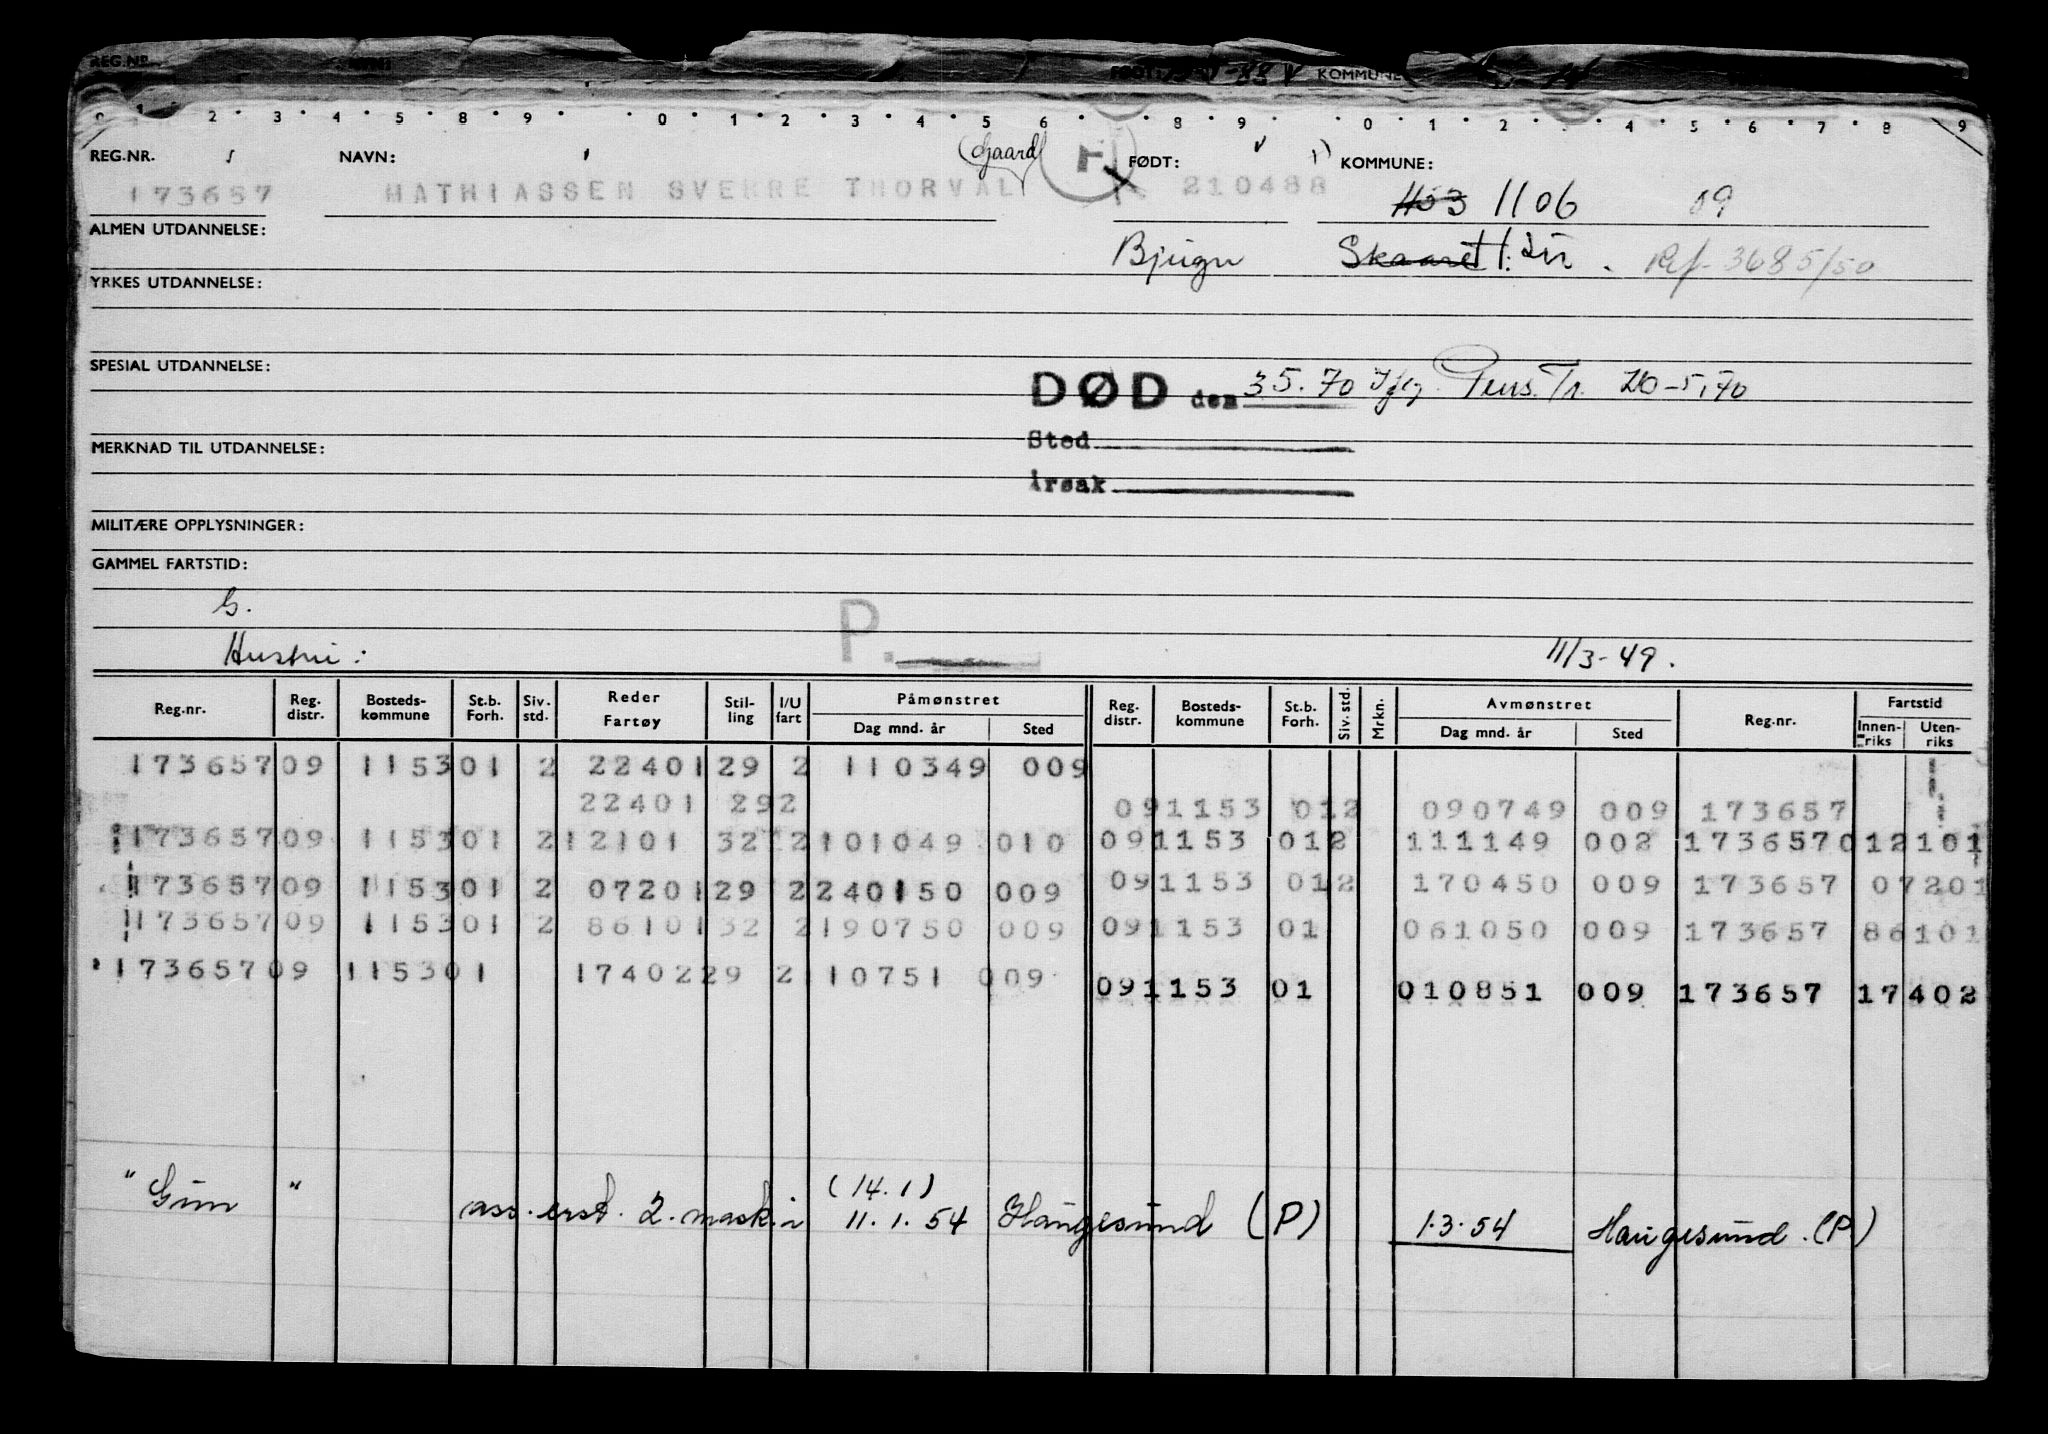 REG.NR. NAVN: (Gaard) H FØDT: 1) KOMMUNE:
173657 MATHIASSEN SVERRE THORVAL 210488 1106 09
ALMEN UTDANNELSE:
Bjugn Skaaret Ref. 3685/50
YRKES UTDANNELSE:
SPESIAL UTDANNELSE:
DØD den 3.5.70 Ifg. Pens. Tr. 20-5.70
Sted
MERKNAD TIL UTDANNELSE:
Årsak
MILITÆRE OPPLYSNINGER:
GAMMEL FARTSTID:
G.
P.
Hustru: 11/3-49.
Reg.nr. Reg. distr. Bosteds-kommune St.b. Forh. Siv. std. Reder Fartøy Stil-ling I/U fart Påmønstret Dag mnd. år Sted Reg. distr. Bosteds-kommune St.b. Forh. Siv. std. Mrkn. Avmønstret Dag mnd. år Sted Reg.nr. Fartstid Innen-riks Uten-riks
173657 09 1153 01 2 22401 29 2 110349 009
22401 29 2 09 1153 01 2 090749 009 173657
173657 09 1153 01 2 12101 32 2 101049 010 09 1153 01 2 111149 002 173657 012101
173657 09 1153 01 2 07201 29 2 240150 009 09 1153 01 2 170450 009 173657 07201
173657 09 1153 01 2 86101 32 2 190750 009 09 1153 01 061050 009 173657 86101
173657 09 1153 01 17402 29 2 110751 009 09 1153 01 010851 009 173657 17402
(14.1)
"Gun" ass. erst. 2. maskin 11.1.54 Haugesund (P) 1.3.54 Haugesund. (P)